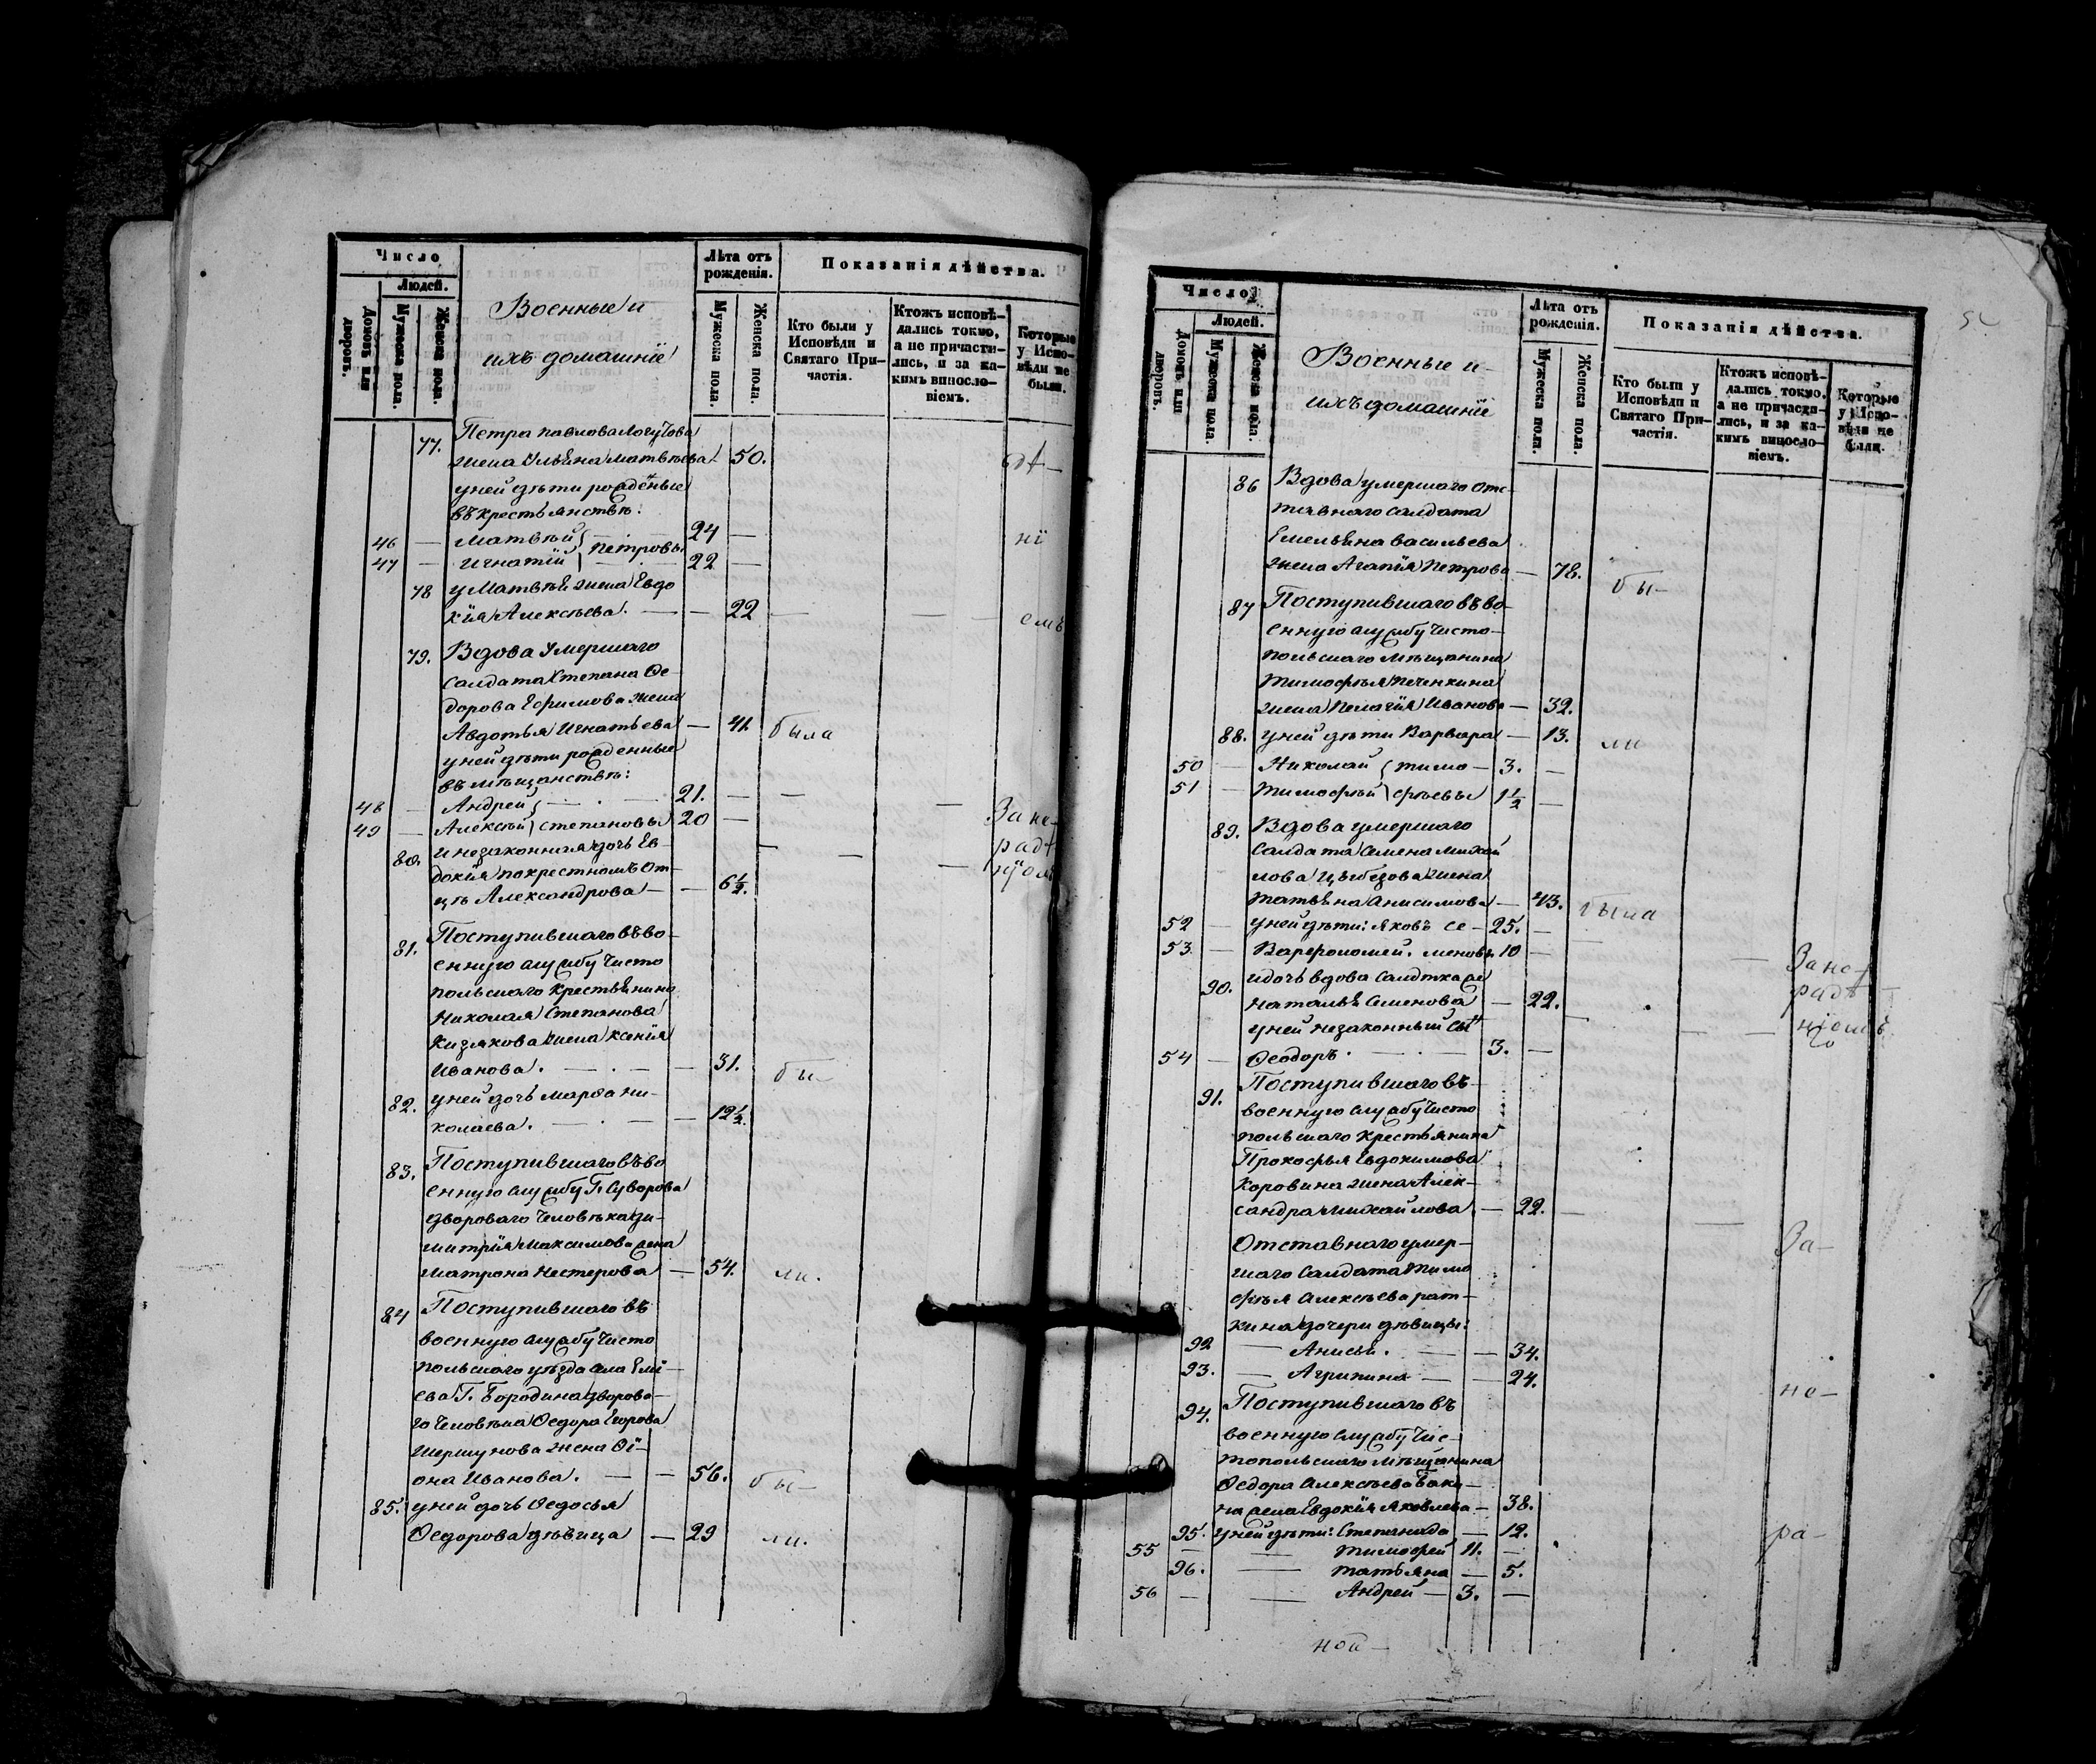 Число
Людей.
Домовъ или дворовъ.
Мужеска пола.
Женска пола.
Военные и
ихъ домашніе
Лѣта отъ рожденія.
Мужеска пола.
Женска пола.
Показанія дѣйства.
Кто были у Исповѣди и Святаго Причастія.
Ктожъ исповѣ-
дались токмо,
а не причасти-
лись, и за ка-
кимъ винословіемъ.
Которые
у Испо-
вѣди не
были.
77. Петра Павлова
жена Ульяна Матвѣева 50.
у ней дѣти рожденые
въ крестьянствѣ:
46 — Матвѣй — 24 —
47 — Игнатій Петровы 22 —
78 у Матвѣя жена Евдо
кія Алексѣева. — — 22
79. Вдова умершаго
солдата Степана Ѳе-
дорова Ефимова жена
Авдотья Игнатьева — 41. была
у ней дѣти рожденные
въ мѣщанствѣ:
48 — Андрей — 21. —
49 — Алексѣй Степановы 20 — За не-
80. и незаконная дочь Ев- рад
докія по крестномъ от-
цѣ Александрова — — 6½.
81. Поступившаго въ во-
енную службу Чисто
польскаго крестьянина
Николая Степанова
Кизякова жена Ксенія
Иванова. — . — — 31. бы-
82. у ней дочь Марѳа Ни-
колаева. — . — — 12½.
83. Поступившаго въ во
енную службу Г. Суворова
двороваго человѣка Ди-
митрія Максимова жена
Матрона Нестерова — 54. ли.
84 Поступившаго въ
военную службу Чисто
польскаго уѣзда села Емі-
ева Г. Бородина дворова-
го человѣка Ѳедора Егорова
Шершунова жена Ѳі-
она Иванова. — — 56. бы-
85. у ней дочь Ѳедосья
Ѳедорова дѣвица — 29 ли.
Число
Людей.
Домовъ или дворовъ.
Мужеска пола.
Женска пола.
Военные и-
ихъ домашніе
Лѣта отъ рожденія.
Мужеска пола.
Женска пола.
Показанія дѣйства.
Кто были у Исповѣди и Святаго Причастія.
Ктожъ исповѣ-
дались токмо,
а не причасти-
лись, и за ка-
кимъ винословіемъ.
Которые
у Испо-
вѣди не
были.
86 Вдова умершаго отс-
тавнаго солдата
Емельяна Васильева
жена Агапія Петрова — 78. бы-
87 Поступившаго въ во-
енную службу Чисто-
польскаго мѣщанина
Тимофѣя Печенкина
жена Пелагія Иванова — 32.
88. у ней дѣти Варвара — 13. ли
50 — Николай Тимо — 3. —
51 — Тимофѣй фѣевы 1½ —
89. Вдова умершаго
солдата Семена Михай
лова жена
Татьяна Анисимова — 43. была
52 — у ней дѣти: Яковъ Се — 25. —
53. — Варфоломей. меновы 10 — За не-
90. и дочь вдова солдтка радѣ-
Наталья Семенова — 22. ніемъ
у ней незаконный сынъ
54 — Ѳеодоръ. — . — 3. —
91. Поступившаго въ-
военную службу Чисто
польскаго крестьянина
Прокофья Евдокимова
Коровина жена Алек-
сандра Михайлова. — 22. —
Отставнаго умер- За-
шаго солдата Тимо
фѣя Алексѣева Рат-
кина дочери дѣвицы:
92 — Анисья. — — 34.
93. — Агрипина — — 24. не-
94. Поступившаго въ
военную службу Чис-
топольскаго мѣщанина
Ѳедора Алексѣева
жена Евдокія Яковлева — 38.
95. у ней дѣти: Степанида — 12. ра-
55 — — Тимофей 11. —
96. — Татьяна — 5.
56 — — Андрей — 3. —